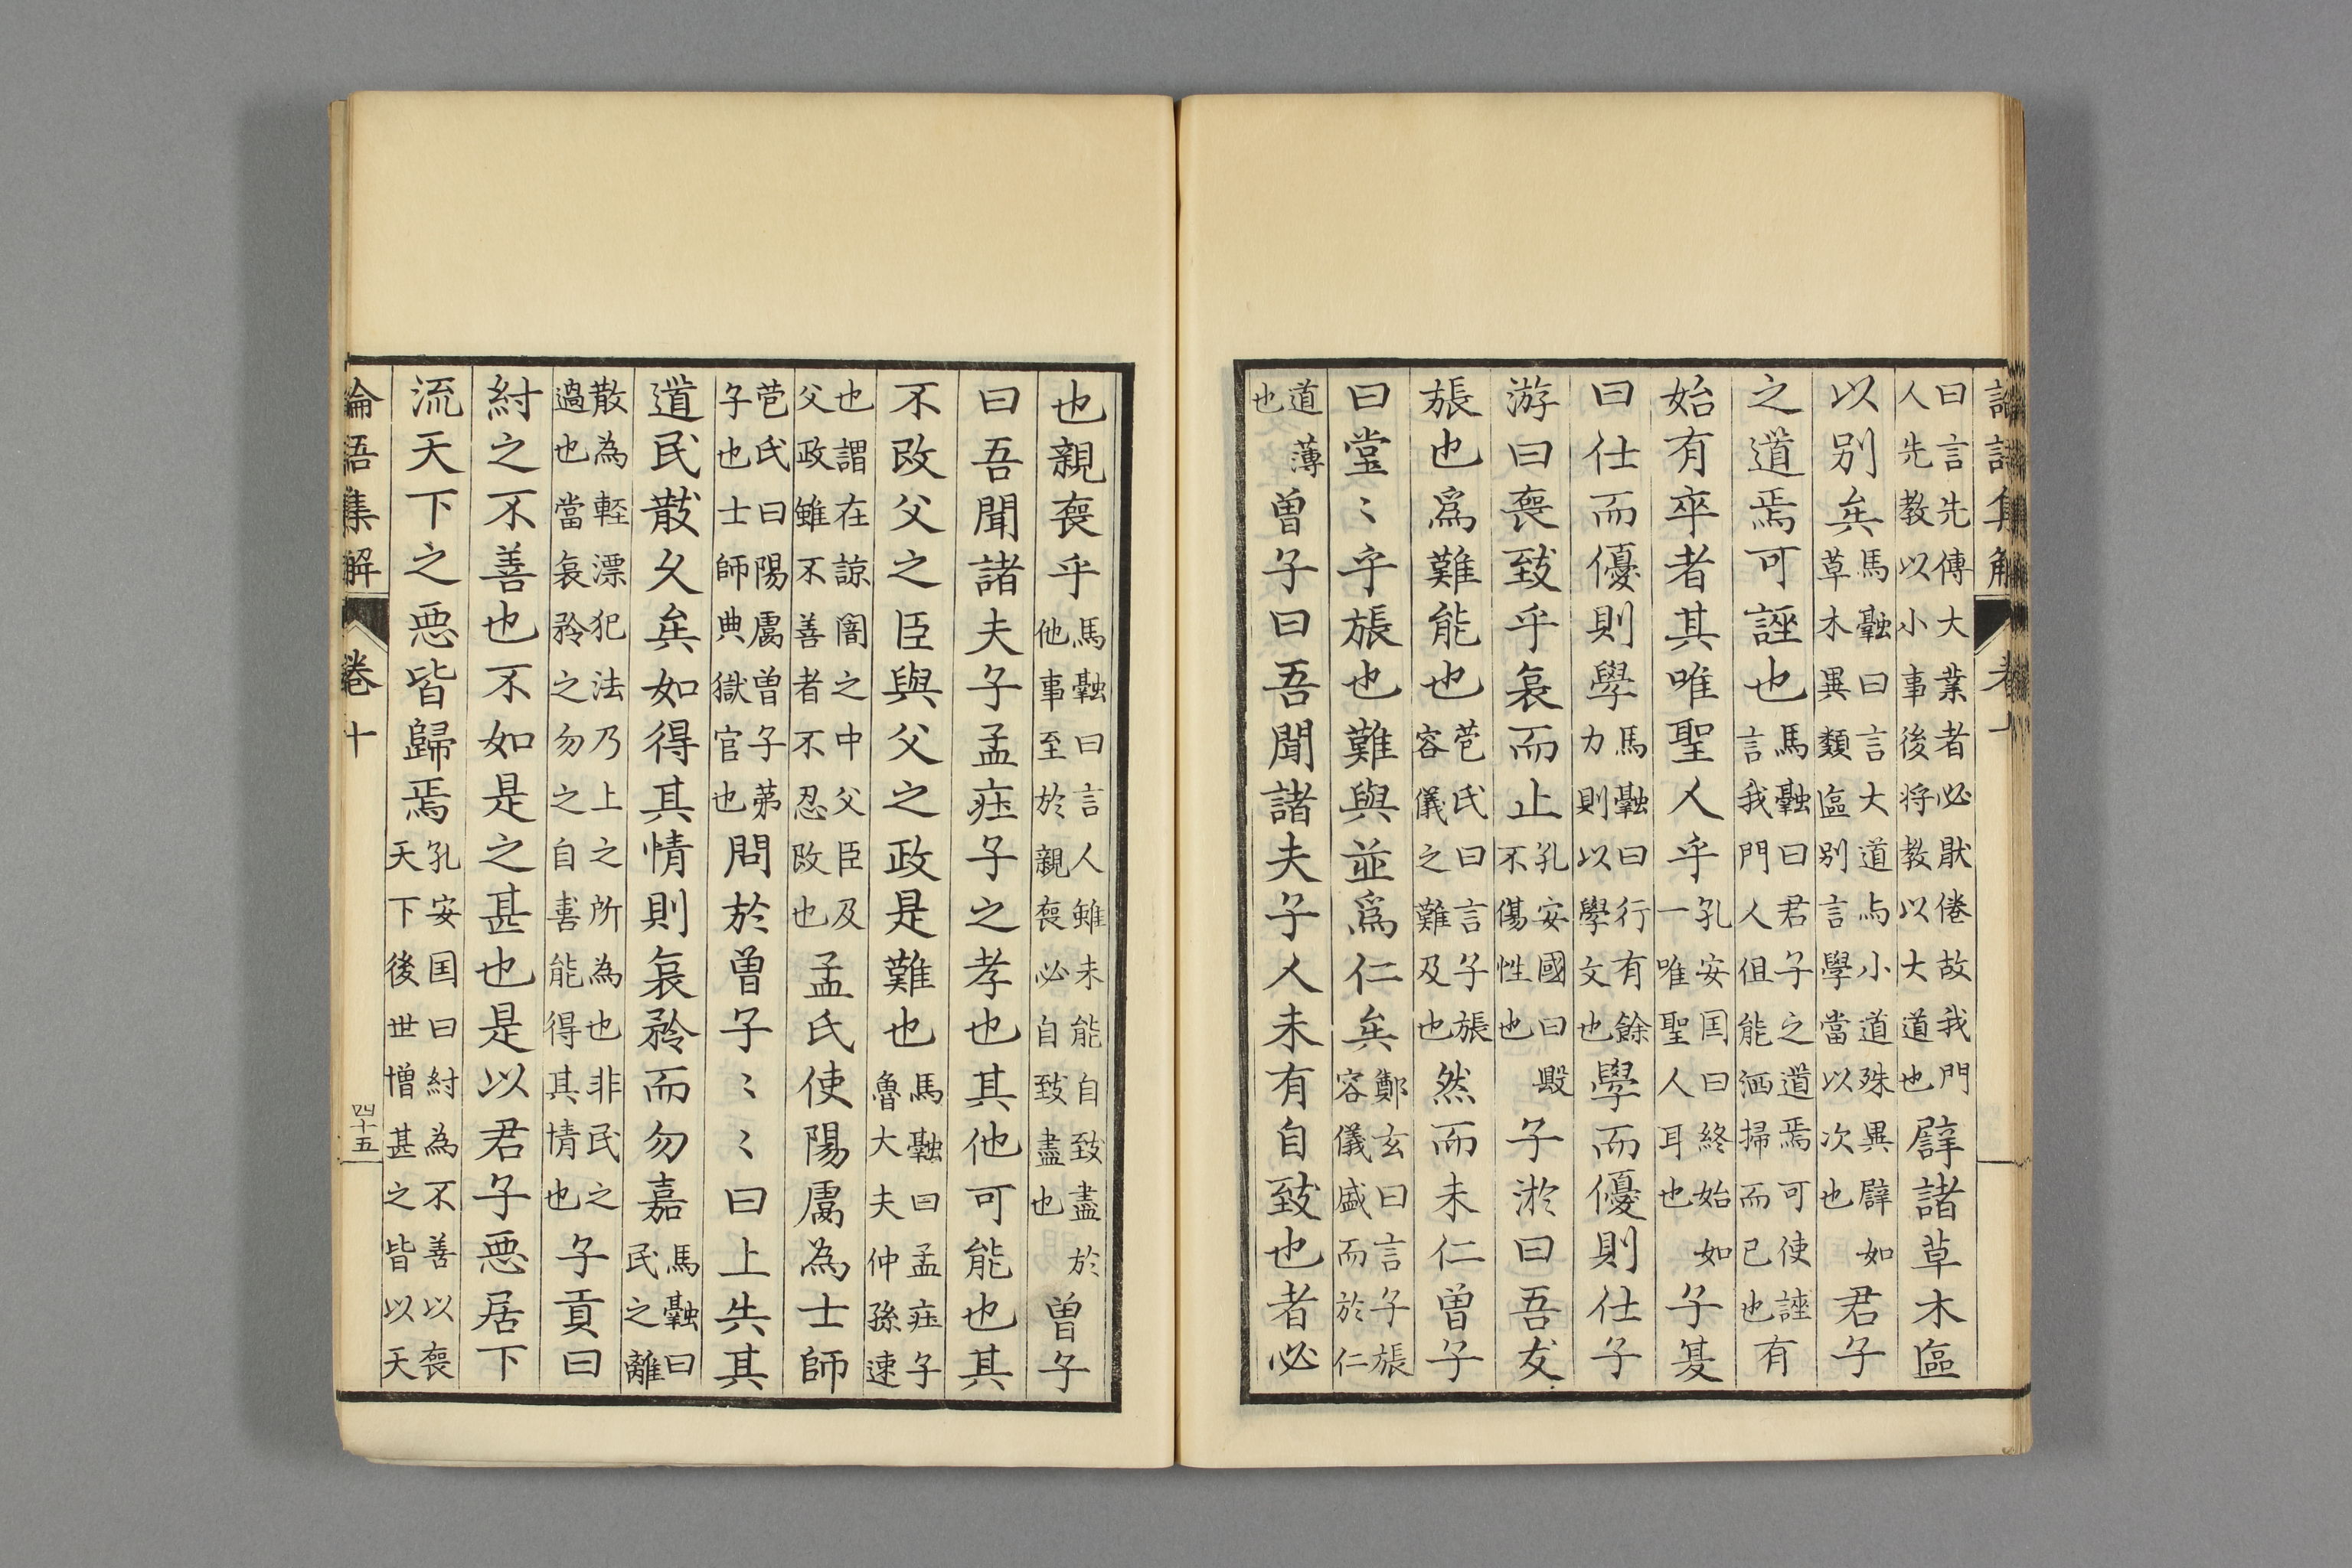 論語集解 卷十
曰言先傳大業者必猒倦故我門人先教以小事後将教以大道也辟諸草木區
以別矣馬融曰言大道与小道殊異辟如草木異類區別言學當以次也君子
之道焉可誣也馬融曰君子之道焉可使誣言我門人伹能洒掃而已也有
始有卒者其唯聖人乎孔安囯曰終始如一唯聖人耳也子夏
曰仕而優則學馬融曰行有餘力則以學文也學而優則仕子
游曰喪致乎哀而止孔安國曰毀不傷性也子游曰吾友
張也爲難能也苞氏曰言子張容儀之難及也然而未仁曽子
曰堂〻乎張也難與並爲仁矣鄭玄曰言子張容儀盛而於仁
道薄也曽子曰吾聞諸夫子人未有自致也者必
也親喪乎馬融曰言人雖未能自致盡於他事至於親喪必自致盡也曽子
曰吾聞諸夫子孟莊子之孝也其他可能也其
不改父之臣與父之政是難也馬融曰孟莊子魯大夫仲孫速
也謂在諒闇之中父臣及父政雖不善者不忍改也孟氏使陽膚為士師
苞氏曰陽膚曽子弟子也士師典獄官也問於曽子〻〻曰上失其
道民散久矣如得其情則哀矜而勿嘉馬融曰民之離
散為軽漂犯法乃上之所為也非民之過也當哀矜之勿之自喜能得其情也子貢曰
紂之不善也不如是之甚也是以君子惡居下
流天下之惡皆歸焉孔安囯曰紂為不善以喪天下後世憎甚之皆以天
論語集解 卷十 四十五